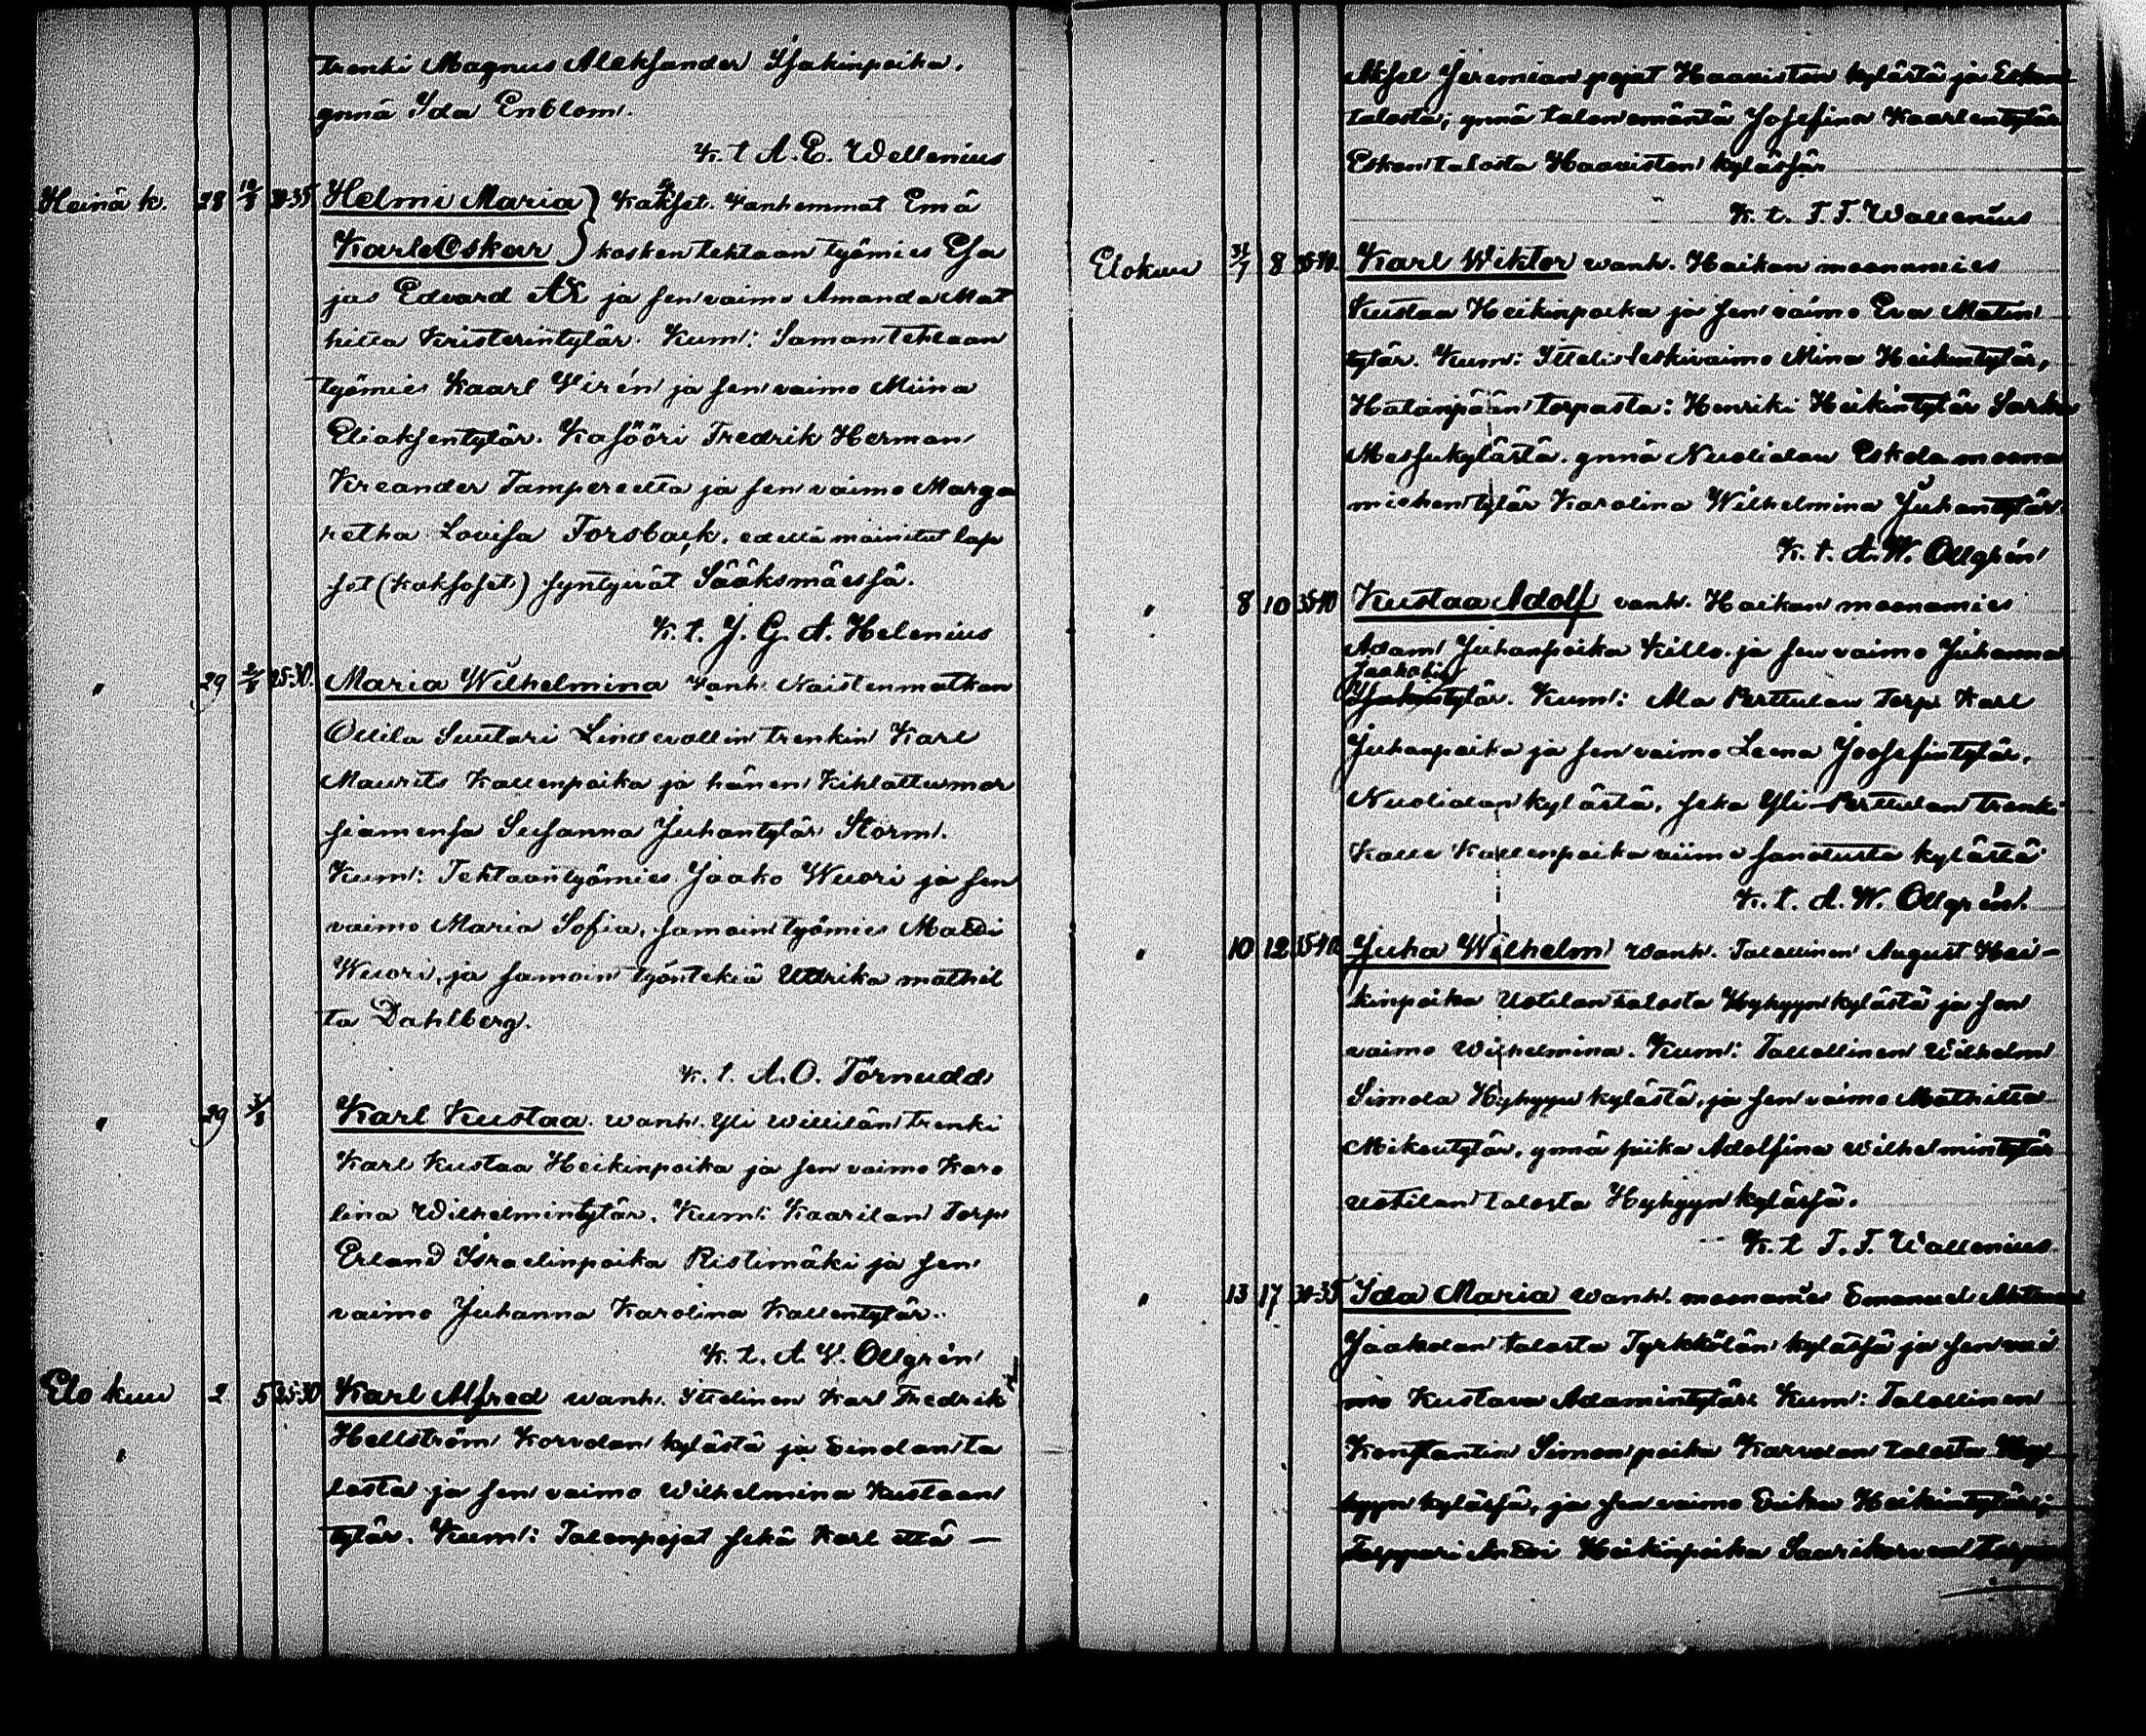 trenki Magnus Aleksander Isakinpoika,
ynnä Ida Enblom.
K. t A. E. Wellenius
Heinä k. 28 10/8 30-35 Helmi Maria } Kakset. Vanhemmat Emä
Karl Oskar } kosken tehtaan työmies Esa
jas Edvard Ax ja sen vaimo Amanda Mat
hilta Kristerintytär. Kum: Saman tehtaan
työmies Kaarl Virén ja sen vaimo Miina
Eliaksentytär. Kasööri Fredrik Herman
Kreander Tampereelta ja sen vaimo Marga
retha Lovisa Forsback, edellä mainitut lap
set (kaksoset) syntyivät Sääksmäessä.
K. t. J. G. A. Helenius
" 29 2/8 25-30. Maria Wilhelmina Vanh. Naistenmatkan
Ollila Suutari Lindevallin trenkin Karl
Maurits Kallenpoika ja hänen Kihlattu mor
siamensa Susanna Juhantytär Storm.
Kum: Tehtaan työmies Jaako Wuori ja sen
vaimo Maria Sofia, samoin työmies Matti
Wuori, ja samoin työntekiä Ulrika mathil
ta Dahlberg.
K. t. A. O. Törnudd
" 29 3/8 Karl Kustaa. wanh. Yli Willilän trenki
Karl Kustaa Heikinpoika ja sen vaimo Karo
lina Wilhelmintytär. Kum: Kaarilan Torp
Erland Israelinpoika Ristimäki ja sen
vaimo Juhanna Karolina Kallentytär.
K. t. A. W. Ollgrén
Elo kuu 2 5 25-30 Karl Alfred wanh. Itellinen Karl Fredrik
" Hellström Korvolan kylästä ja Einolan ta
losta ja sen vaimo Wilhelmina Kustaan
tytär. Kum: Talonpojat sekä Karl että —
Aksel Jeremian pojat Haaviston kylästä ja Eskon
talosta, ynnä talon emäntä Josefina Kaarlentytär
Eskon talosta Haaviston kylässä
K. t. F. F. Wallenius
Elokuu 31/7 8 35-40. Karl Wiktor wanh. Haikan maanamies
Kustaa Heikinpoika ja sen vaimo Eva Matin
tytär. Kum: Itellis leskivaimo Mina Heikintytär,
Hatanpään torpasta: Henriki Heikintytär Sarka
Messukylästä. ynnä Nuolialan Eskola maana
miehen tytär Karolina Wilhelmina Juhantytär.
K. t. A. W. Ollgrén
" 8 10 35-40 Kustaa Adolf vanh. Haikan maanamies
Adam Juhanpoika Killo ja sen vaimo Juhanna
Jaakobin
tytär. Kum: Ala Perttulan Torp Karl
Juhanpoika ja sen vaimo Leena Joosefintytär,
Nuolialan kylästä, seka Yli-Perttulan trenki
Kalle Kallenpoika viime sanotusta kylästä
K. t. A. W. Ollgrén.
" 10 12 35-40 Juha Wilhelm wanh. Talollinen August Hei-
kinpoika Uotilan talosta Hyhyyn kylästä ja sen
vaimo Wilhelmina. Kum: Talollinen Wilhelm
Simola Hyhyyn kylästä, ja sen vaimo Mathilta
Mikontytär, ynnä piika Adolfina Wilhelmintytär
Uotilan talosta Hyhyyn kylässä.
K. t F. F. Wallenius
" 13 17 30-35 Ida Maria wanh. maanamies Emanuel
Jaakolan talosta Tyrkkölän kylässä ja sen vai
mo Kustava Adamintytär. Kum: Talollinen
Konstantin Simonpoika Karvolan talosta Hy
hyyn kylässä, ja sen vaimo Erika Heikintytär;
Torppari Antti Heikinpoika